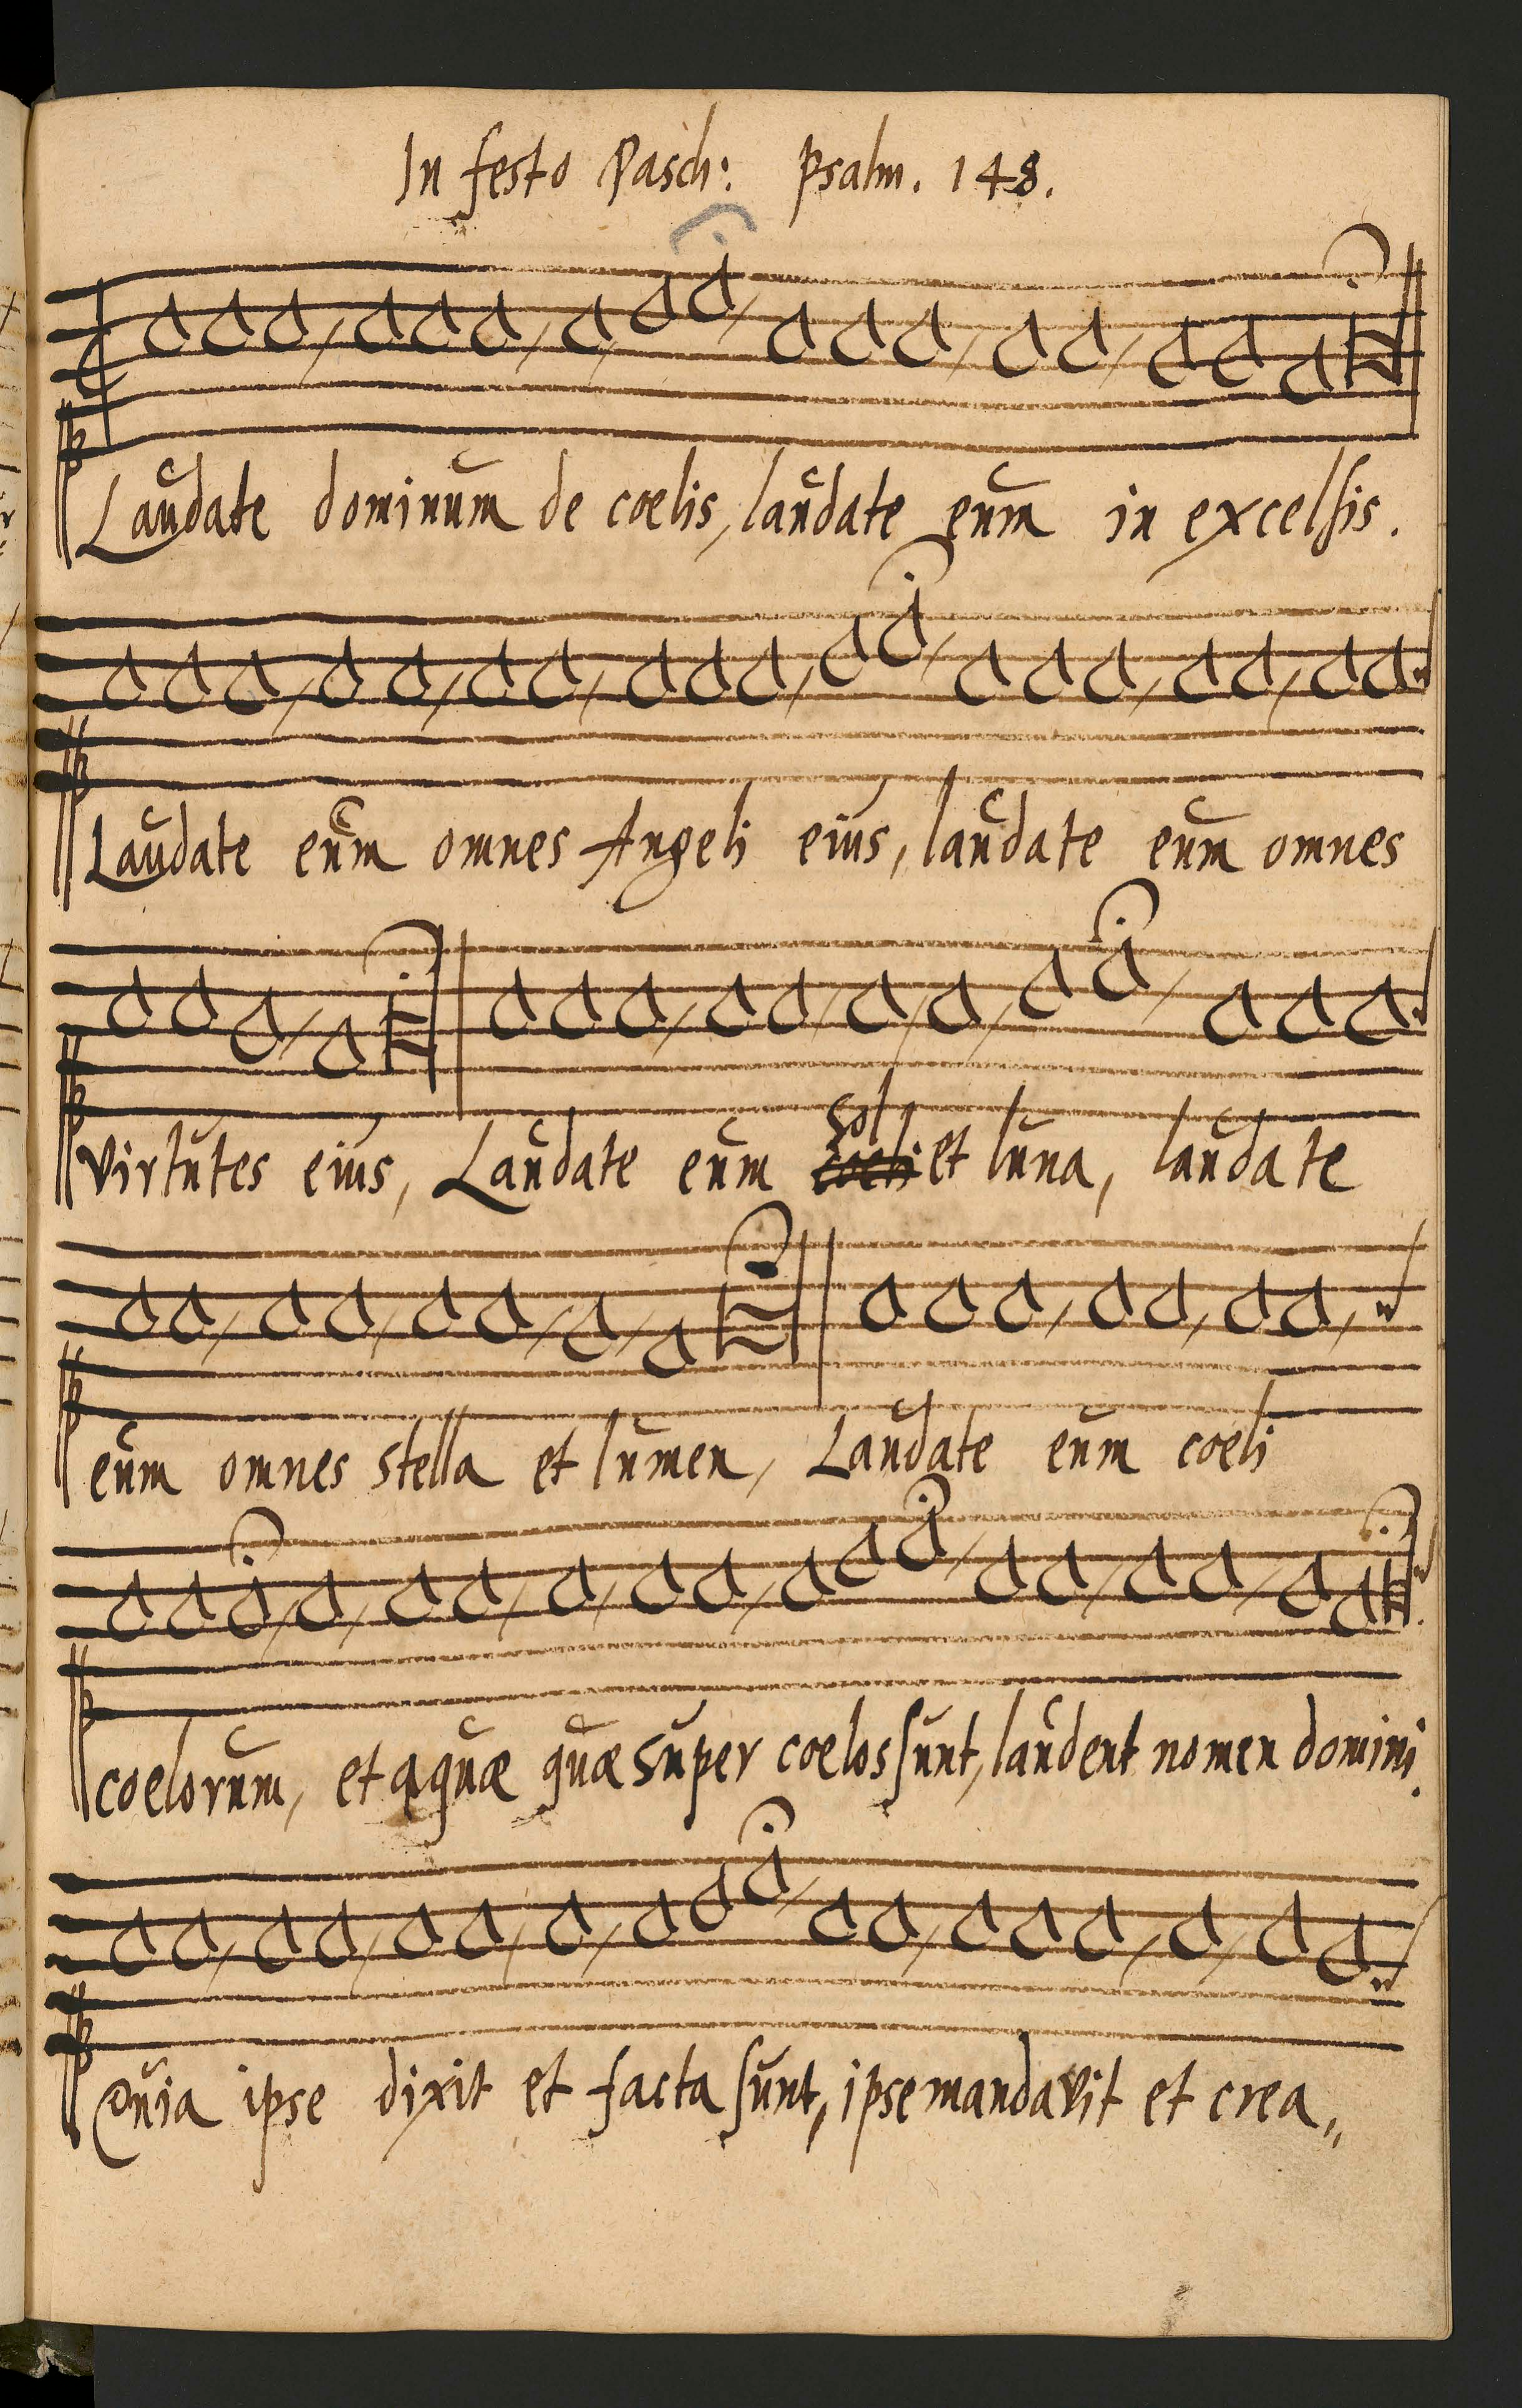 In festo Pasch: Psalm. 148.
Laudate dominum de coelis, laudate eum in excelsis.
Laudate eum omnes Angeli eius, laudate eum omnes
sol
virtutes eius, Laudate eum coeli et luna, laudate
eum omnes stella et lumen, Laudate eum coeli
coelorum, et aquæ quæ super coelos sunt, laudent nomen domini.
Quia ipse dixit et facta sunt, ipse mandavit et crea„